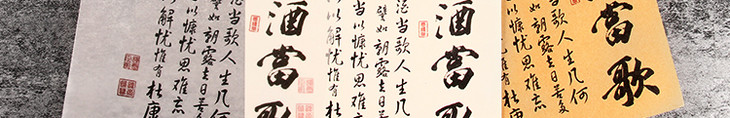 當歌
当歌人生几何
如朝露去日苦多
以慷忧思难忘
以解忧惟有杜康
酒當歌
当歌人生几何
譬如朝露去日苦多
以慷忧思难忘
以解忧惟有杜康
酒當歌
当歌人生几何
譬如朝露去日苦多
以慷忧思难忘
以解忧惟有杜康